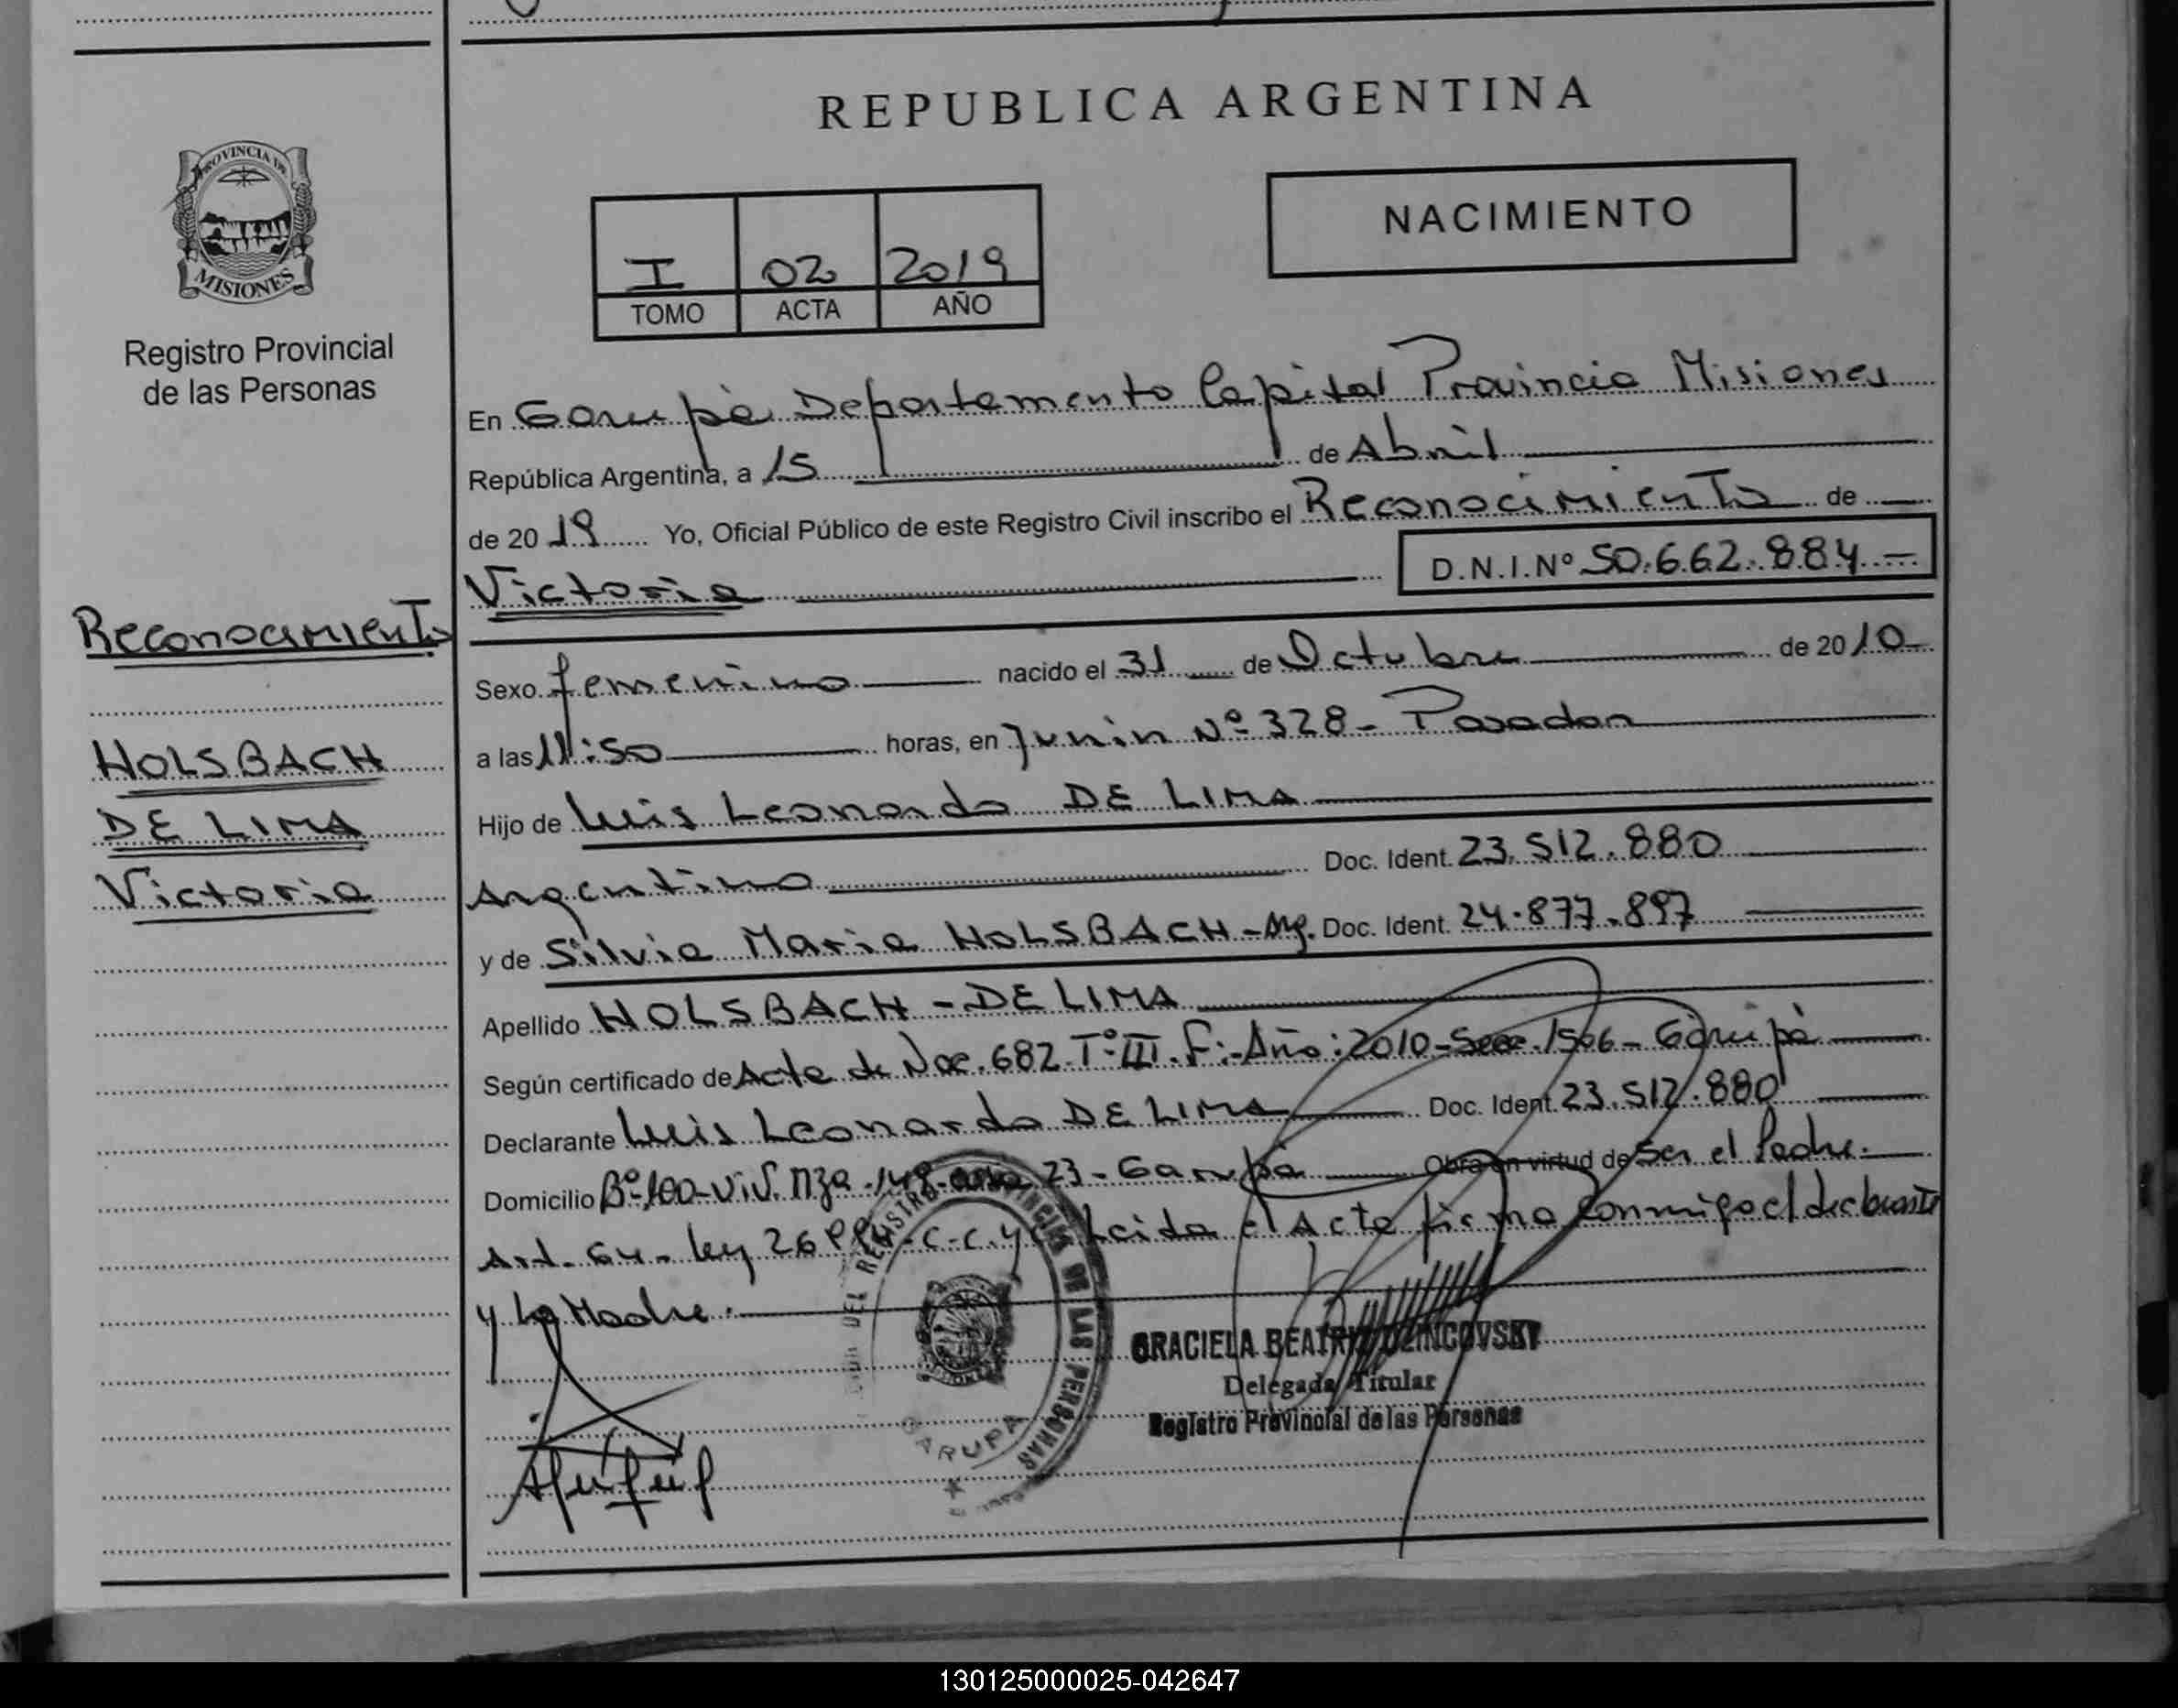 REPUBLICA ARGENTINA
NACIMIENTO
PROVINCIA DE
MISIONES
Registro Provincial
de las Personas
I 02 2019
TOMO ACTA AÑO
En Garupá Departamento Capital Provincia Misiones
República Argentina, a 15 de Abril
de 20 19 Yo, Oficial Público de este Registro Civil inscribo el Reconocimiento de
Victoria D.N.I.Nº 50.662.884.-
Reconocimiento
HOLSBACH
DE LIMA
Victoria
Sexo femenino nacido el 31 de Octubre de 20 10
a las 11:50 horas, en Junin Nº 328- Posadas
Hijo de Luis Leonardo DE LIMA
Argentino Doc. Ident. 23.512.880
y de Silvia Maria HOLSBACH-Arg. Doc. Ident. 24.877.897
Apellido HOLSBACH - DE LIMA
Según certificado de Acta de Nac. 682 Tº III. F:-Año: 2010- 1506- Garupá
Declarante Luis Leonardo DE LIMA Doc. Ident. 23.512.880
Domicilio Bº-100-Viv. Mza.148- casa 23- Garupá Obra en virtud de Ser el Padre.
Art. 64- Ley 26 - C.C.y Leida el Acta firma conmigo el declarante
y la Madre.
REGISTRO PROVINCIAL DE LAS PERSONAS
GARUPA
GRACIELA BEATRIZ
Delegada Titular
Registro Provincial de las Personas
130125000025-042647